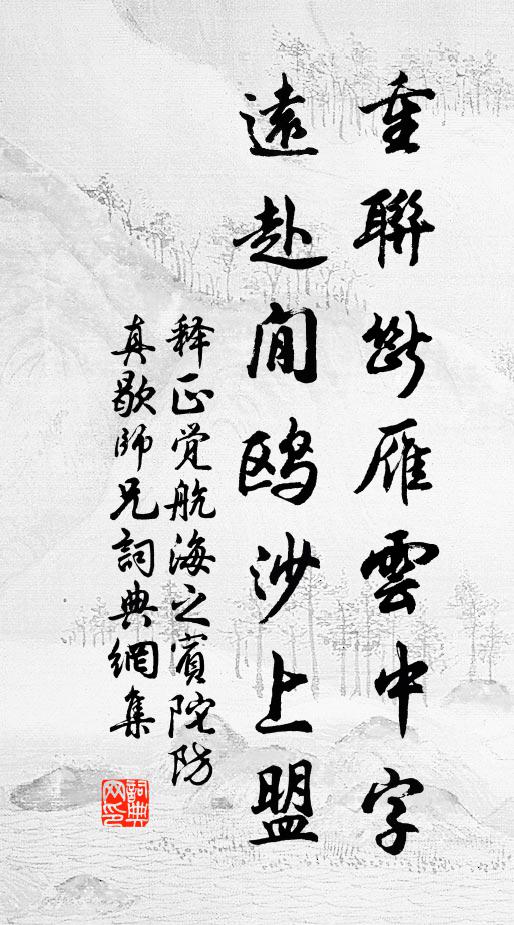 重聯斷雁雲中字
遠赴閒鸥沙上盟
释正觉航海之宾陀防
真歇師兄詞典網集
詞典
网印